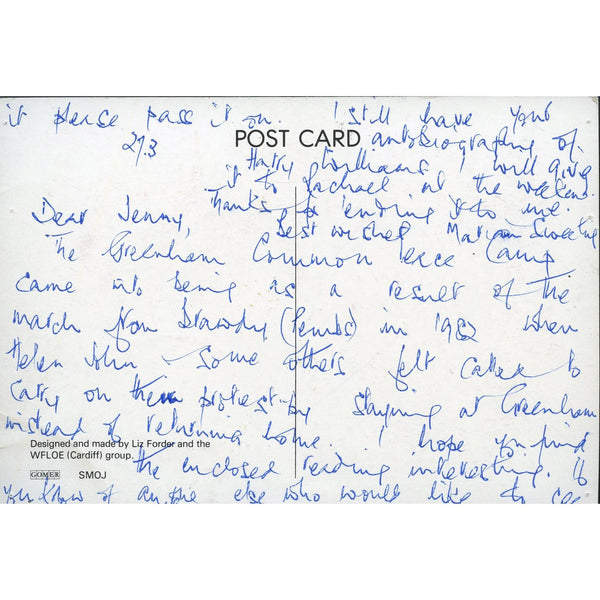 it please pass it on. I still have your
29.3
POST CARD
autobiography of
Harry Williams. I will give
it to Rachael at the weekend.
Thanks for lending it to me.
Best wishes Marian
Dear Jenny,
The Greenham Common Peace Camp
came into being as a result of the
march from Brawdy (Pembs) in 1982 when
Helen John & some others felt called to
carry on their protest by staying at Greenham
instead of returning home. I hope you find
the enclosed reading interesting. If
you know of anyone else who would like to see
Designed and made by Liz Forder and the
WFLOE (Cardiff) group.
GOMER SMOJ